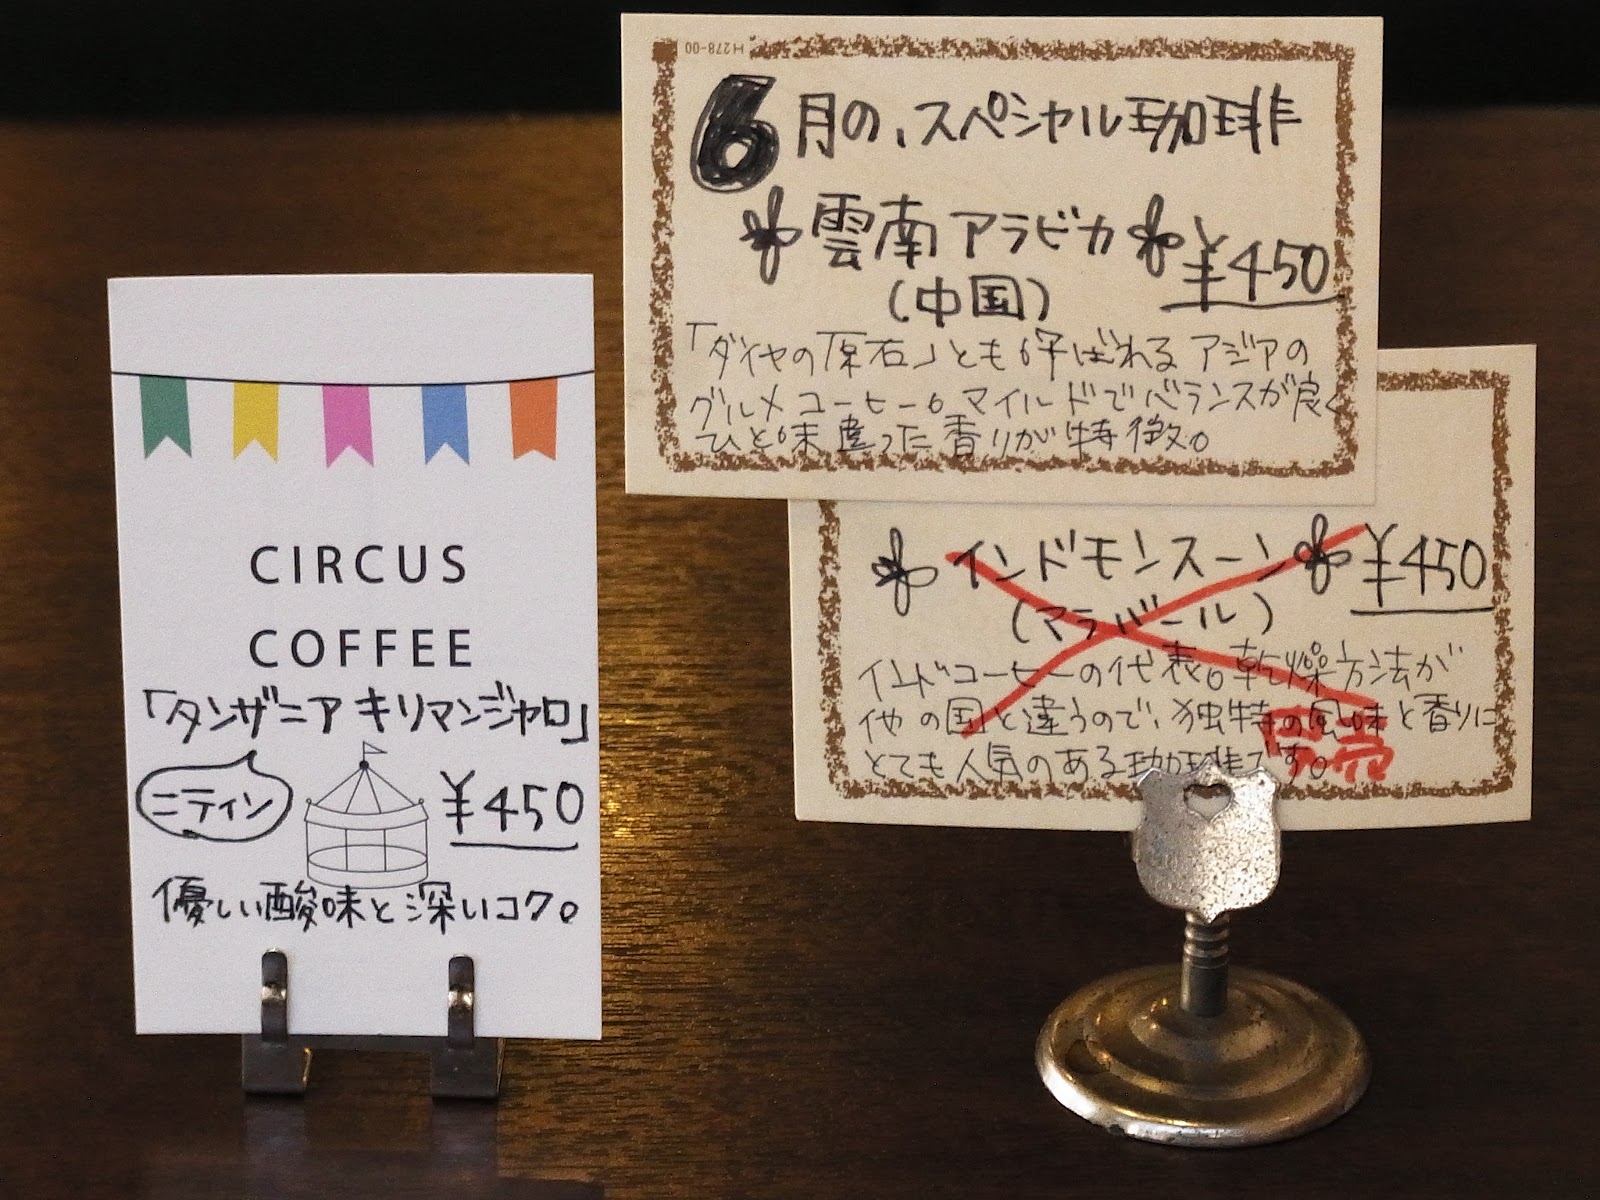 CIRCUS
COFFEE
「タンザニア キリマンジャロ」
ニティン
¥450
優しい酸味と深いコク。
H278-00
6月の、スペシャル珈琲
雲南アラビカ
¥450
(中国)
「ダイヤの原石」とも呼ばれるアジアの
グルメコーヒー。マイルドでバランスが良く
ひと味違った香りが特徴。
インドモンスーン
¥450
(マラバール)
インドコーヒーの代表。乾燥方法が
他の国と違うので、独特の風味と香りに
とても人気のある珈琲です。
完売